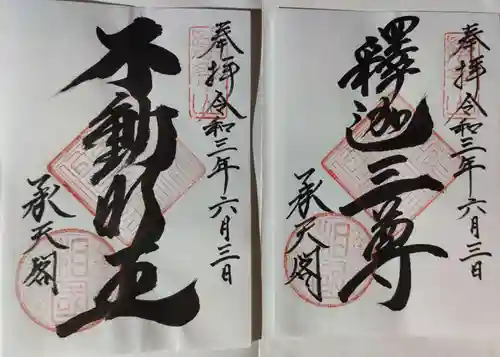 奉拝 令和三年六月三日
不動明王
承天閣
奉拝 令和三年六月三日
釋迦三尊
承天閣